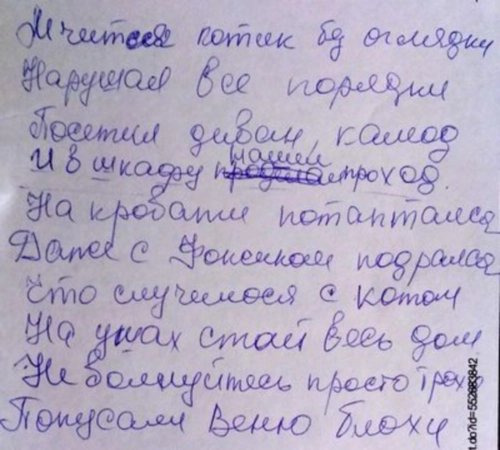 Мчится котик бд оглядки
Нарушая все порядки
Посетил диван, камод
И в шкафу нашел проход.
На кровати потаптался
Даже с Фоксиком подрался
Что случилося с котом
На ушах стаит весь дом
Не волнуйтесь просто трохи
Покусали Веню блохи
t.do?id=552683842